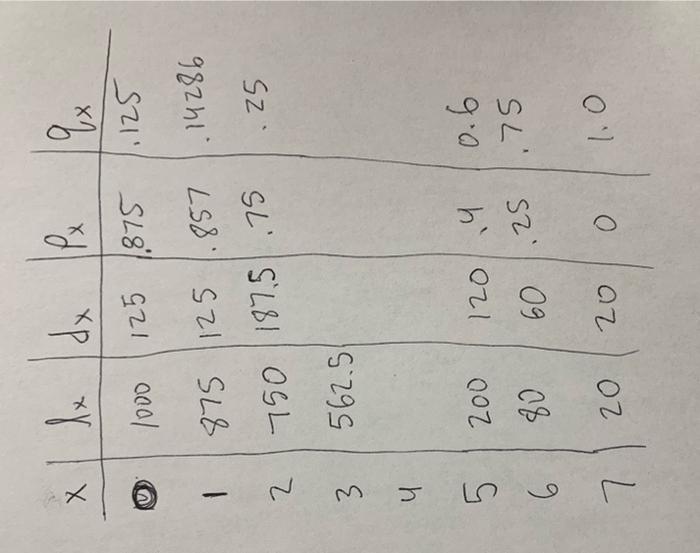 x lx dx px qx
0 1000 125 .875 .125
1 875 125 .857 .14286
2 750 187.5 .75 .25
3 562.5
4
5 200 120 .4 0.6
6 80 60 .25 .75
7 20 20 0 1.0